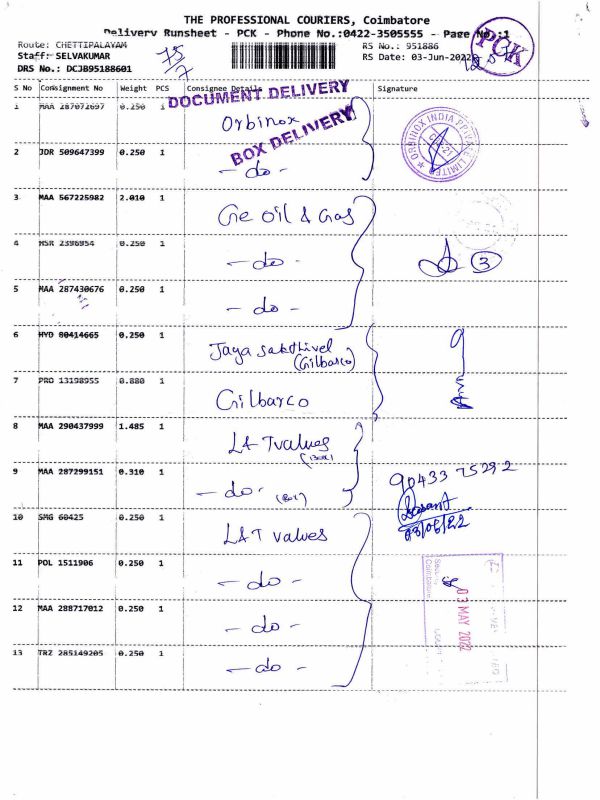 THE PROFESSIONAL COURIERS, Coimbatore
Delivery Runsheet - PCK - Phone No.:0422-3505555 - Page No.:1
Route: CHETTIPALAYAM
RS No.: 951886
Staff: SELVAKUMAR
RS Date: 03-Jun-2022
DRS No.: DCJB95188601
75/7
PCK
S No Consignment No Weight PCS Consignee Details Signature
DOCUMENT DELIVERY
BOX DELIVERY
1 MAA 287072697 0.250 1 Orbinox
ORBINOX INDIA PRIVATE LIMITED
2 JDR 509647399 0.250 1 - do -
3 MAA 567225982 2.010 1 Ge Oil & Gas
4 MSR 2396954 0.250 1 - do -
3
5 MAA 287430676 0.250 1 - do -
6 HYD 80414665 0.250 1 Jaya Sakthivel
(Gilbarco)
7 PRO 13198955 0.880 1 Gilbarco
8 MAA 290437999 1.485 1 L&T valves
(Box)
9 MAA 287299151 0.310 1 - do - (Box)
90433 75292
10 SMG 60425 0.250 1 L&T valves
11 POL 1511906 0.250 1 - do -
03 MAY 2022
12 MAA 288717012 0.250 1 - do -
13 TRZ 285149205 0.250 1 - do -